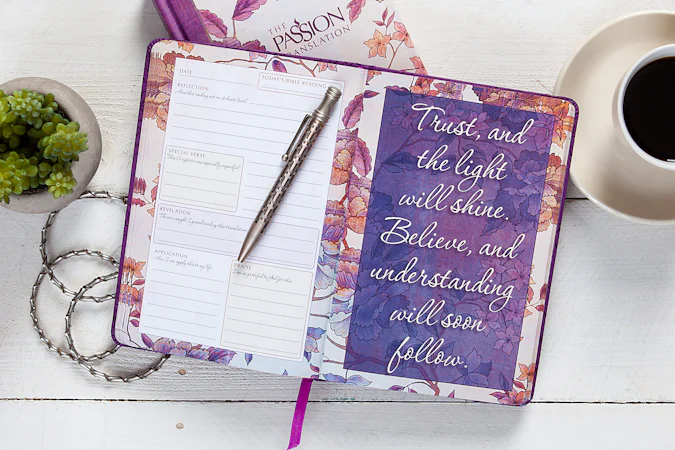 THE
PASSION
TRANSLATION
DATE
TODAY'S BIBLE READING
REFLECTION
SPECIAL VERSE
REVELATION
APPLICATION
How I can apply this to my life
PRAISE
Trust, and
the light
will shine.
Believe, and
understanding
will soon
follow.